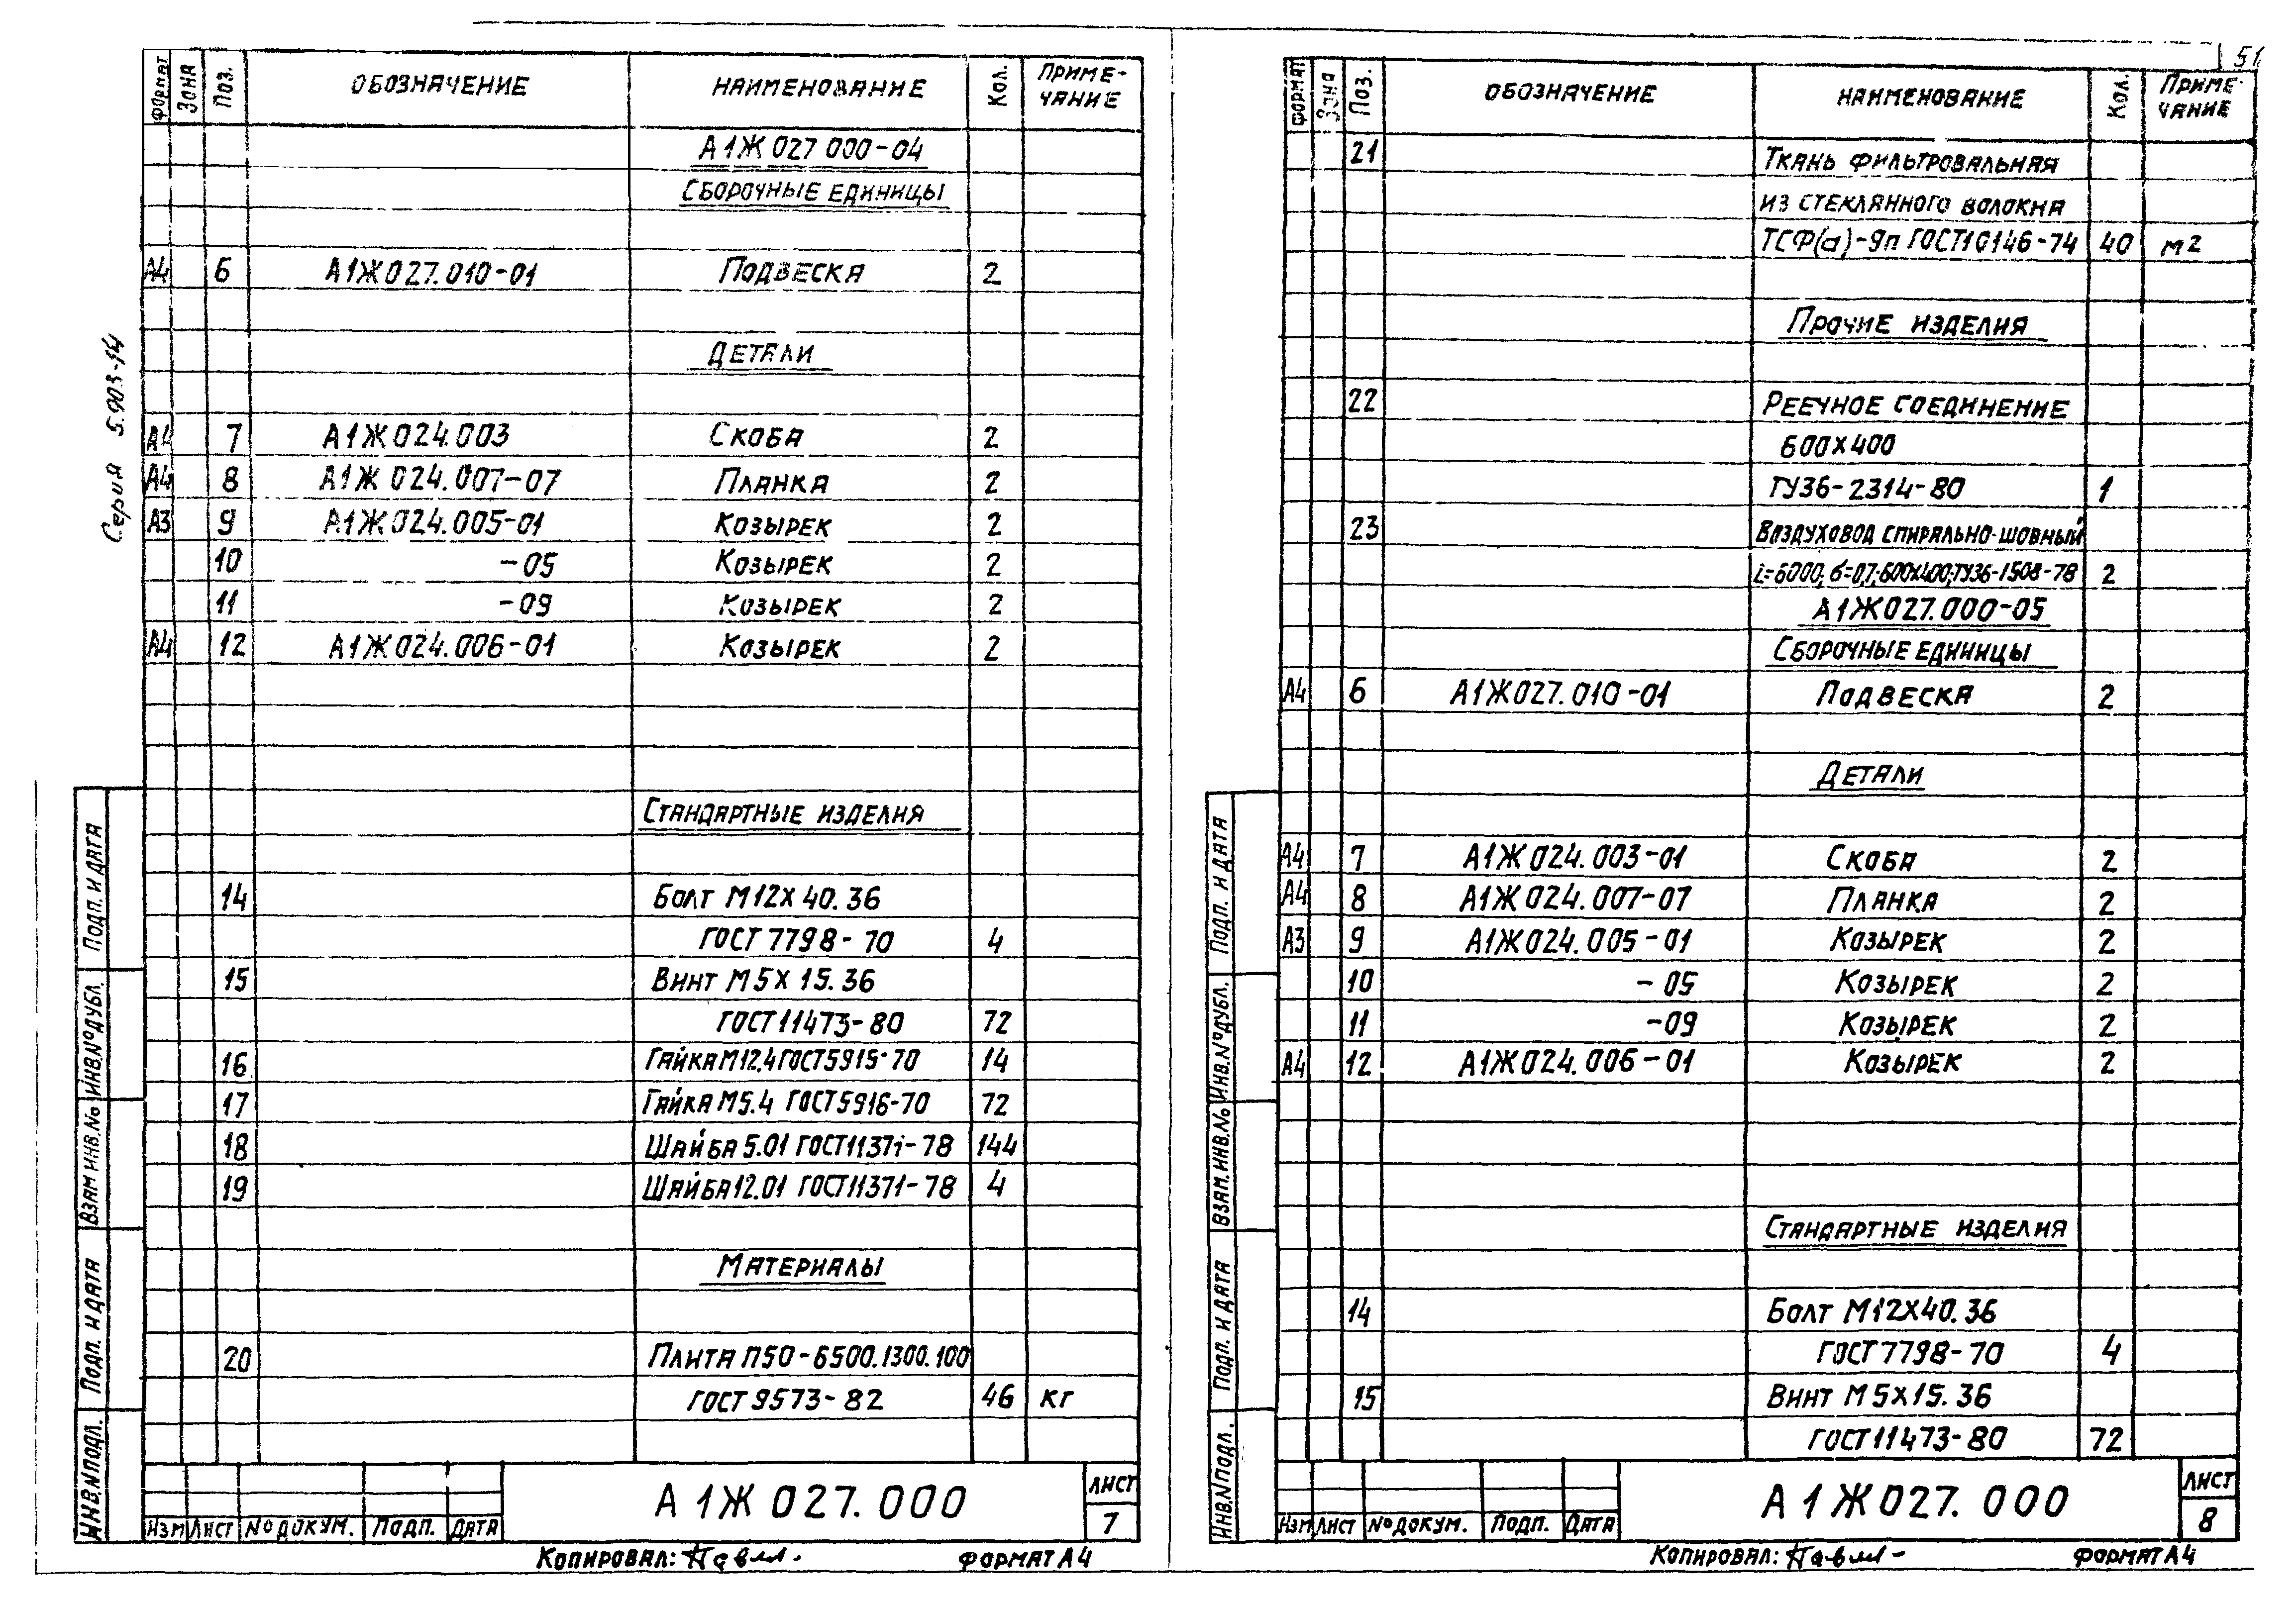 51
Серия 5.903-14
Формат Зона Поз. Обозначение Наименование Кол. Приме-
чание
А1Ж 027 000-04
Сборочные единицы
А4 6 А1Ж027.010-01 Подвеска 2
Детали
А4 7 А1Ж024.003 Скоба 2
А4 8 А1Ж 024.007-07 Планка 2
А3 9 А1Ж024.005-01 Козырек 2
10 -05 Козырек 2
11 -09 Козырек 2
А4 12 А1Ж024.006-01 Козырек 2
Стандартные изделия
14 Болт М12х40.36
ГОСТ 7798-70 4
15 Винт М5х15.36
ГОСТ 11473-80 72
16 Гайка М12.4 ГОСТ 5915-70 14
17 Гайка М5.4 ГОСТ 5916-70 72
18 Шайба 5.01 ГОСТ 11371-78 144
19 Шайба 12.01 ГОСТ 11371-78 4
Материалы
20 Плита П50-6500.1300.100
ГОСТ 9573-82 46 кг
Подп. и дата
Инв.№ дубл.
Взам. инв.№
Подп. и дата
Инв.№ подл.
Изм Лист № докум. Подп. Дата
А1Ж027.000
Лист
7
Копировал:
Формат А4
Формат Зона Поз. Обозначение Наименование Кол. Приме-
чание
21 Ткань фильтровальная
из стеклянного волокна
ТСФ(а)-9п ГОСТ 10146-74 40 м2
Прочие изделия
22 Реечное соединение
600х400
ТУ36-2314-80 1
23 Воздуховод спирально-шовный
L=6000, б=0,7-600х400;ТУ36-1508-78 2
А1Ж027.000-05
Сборочные единицы
А4 6 А1Ж027.010-01 Подвеска 2
Детали
А4 7 А1Ж024.003-01 Скоба 2
А4 8 А1Ж024.007-07 Планка 2
А3 9 А1Ж024.005-01 Козырек 2
10 -05 Козырек 2
11 -09 Козырек 2
А4 12 А1Ж024.006-01 Козырек 2
Стандартные изделия
14 Болт М12х40.36
ГОСТ 7798-70 4
15 Винт М5х15.36
ГОСТ 11473-80 72
Подп. и дата
Инв.№ дубл.
Взам. инв.№
Подп. и дата
Инв.№ подл.
Изм Лист № докум. Подп. Дата
А1Ж027.000
Лист
8
Копировал:
Формат А4